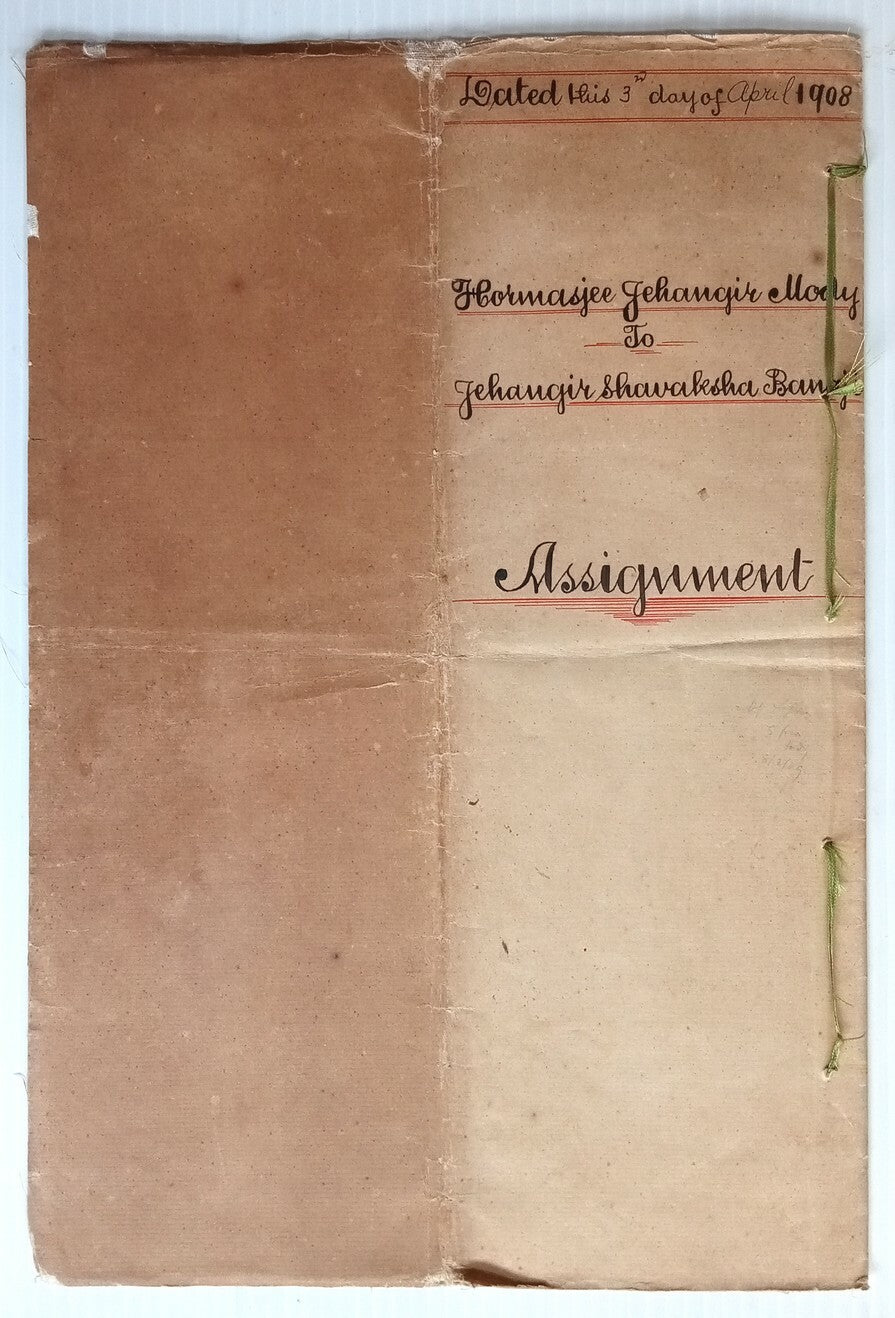 Dated this 3rd day of April 1908
Hormasjee Jehangir Mody
To
Jehangir Shavaksha Banaji
Assignment